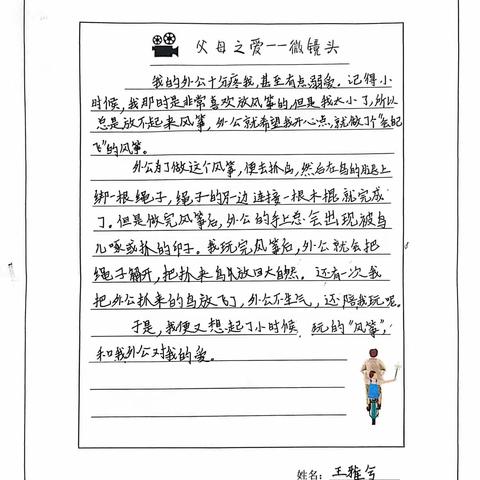 父母之爱——微镜头
我的外公十分疼我,甚至有点溺爱。记得小
时候,我那时是非常喜欢放风筝的,但是我太小了,所以
总是放不起来风筝,外公就希望我开心点,就做了个“会自己
飞”的风筝。
外公为了做这个风筝,便去抓鸟,然后在鸟的腿上
绑一根绳子,绳子的另一边连接一根木棍就完成
了。但是做完风筝后,外公的手上总会出现被鸟
儿啄或抓的印子。我玩完风筝后,外公就会把
绳子解开,把抓来鸟儿放回大自然。还有一次我
把外公抓来的鸟放飞了,外公不生气,还陪我玩呢。
于是,我便又想起了小时候玩的“风筝”,
和我外公对我的爱。
姓名:王雅兮